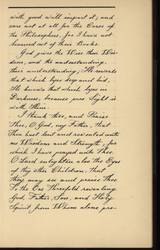 with good will impart it; and
care not at all for the Ores of
the Philosophers, for I have not
learned out of their Books
God gives the Wise their Wis-
dom, and the understanding
their understanding; He reveals
that which lyes deep and hid;
He knows that which lyes in
Darkness, because pure Light is
with Him.
I thank thee, and Praise
Thee, O God, my Father, that
Thou hast lent and revealed unto
me Wisdom and Strength; for
which I have prayed with Thee.
O Lord enlighten also the Eyes
of thy other Children; that
They may see and praise Thee.
To the One Threefold revealing
God, Father, Son, and Holy
Spirit, from Whom alone pro-